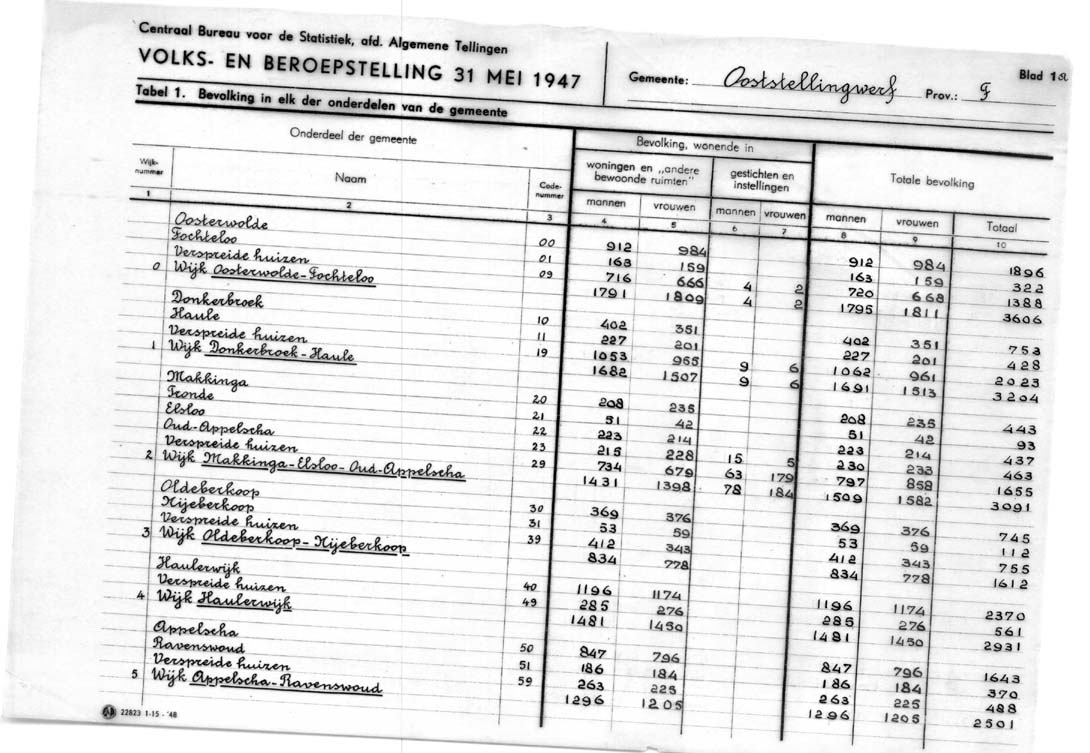 Centraal Bureau voor de Statistiek, afd. Algemene Tellingen
VOLKS- EN BEROEPSTELLING 31 MEI 1947
Gemeente: Ooststellingwerf Prov.: F Blad 1a
Tabel 1. Bevolking in elk der onderdelen van de gemeente
Onderdeel der gemeente Bevolking, wonende in Totale bevolking
woningen en „andere bewoonde ruimten" gestichten en instellingen
Wijk-nummer Naam Code-nummer mannen vrouwen mannen vrouwen mannen vrouwen Totaal
1 2 3 4 5 6 7 8 9 10
Oosterwolde 00 912 984 912 984 1896
Fochteloo 01 163 159 163 159 322
Verspreide huizen 09 716 666 4 2 720 668 1388
0 Wijk Oosterwolde-Fochteloo 1791 1809 4 2 1795 1811 3606
Donkerbroek 10 402 351 402 351 753
Haule 11 227 201 227 201 428
Verspreide huizen 19 1053 955 9 6 1062 961 2023
1 Wijk Donkerbroek-Haule 1682 1507 9 6 1691 1513 3204
Makkinga 20 208 235 208 235 443
Tronde 21 51 42 51 42 93
Elsloo 22 223 214 223 214 437
Oud-Appelscha 23 215 228 15 5 230 233 463
Verspreide huizen 29 734 679 63 179 797 858 1655
2 Wijk Makkinga-Elsloo-Oud-Appelscha 1431 1398 78 184 1509 1582 3091
Oldeberkoop 30 369 376 369 376 745
Nijeberkoop 31 53 59 53 59 112
Verspreide huizen 39 412 343 412 343 755
3 Wijk Oldeberkoop-Nijeberkoop 834 778 834 778 1612
Haulerwijk 40 1196 1174 1196 1174 2370
Verspreide huizen 49 285 276 285 276 561
4 Wijk Haulerwijk 1481 1450 1481 1450 2931
Appelscha 50 847 796 847 796 1643
Ravenswoud 51 186 184 186 184 370
Verspreide huizen 59 263 225 263 225 488
5 Wijk Appelscha-Ravenswoud 1296 1205 1296 1205 2501
22823 1-15-'48